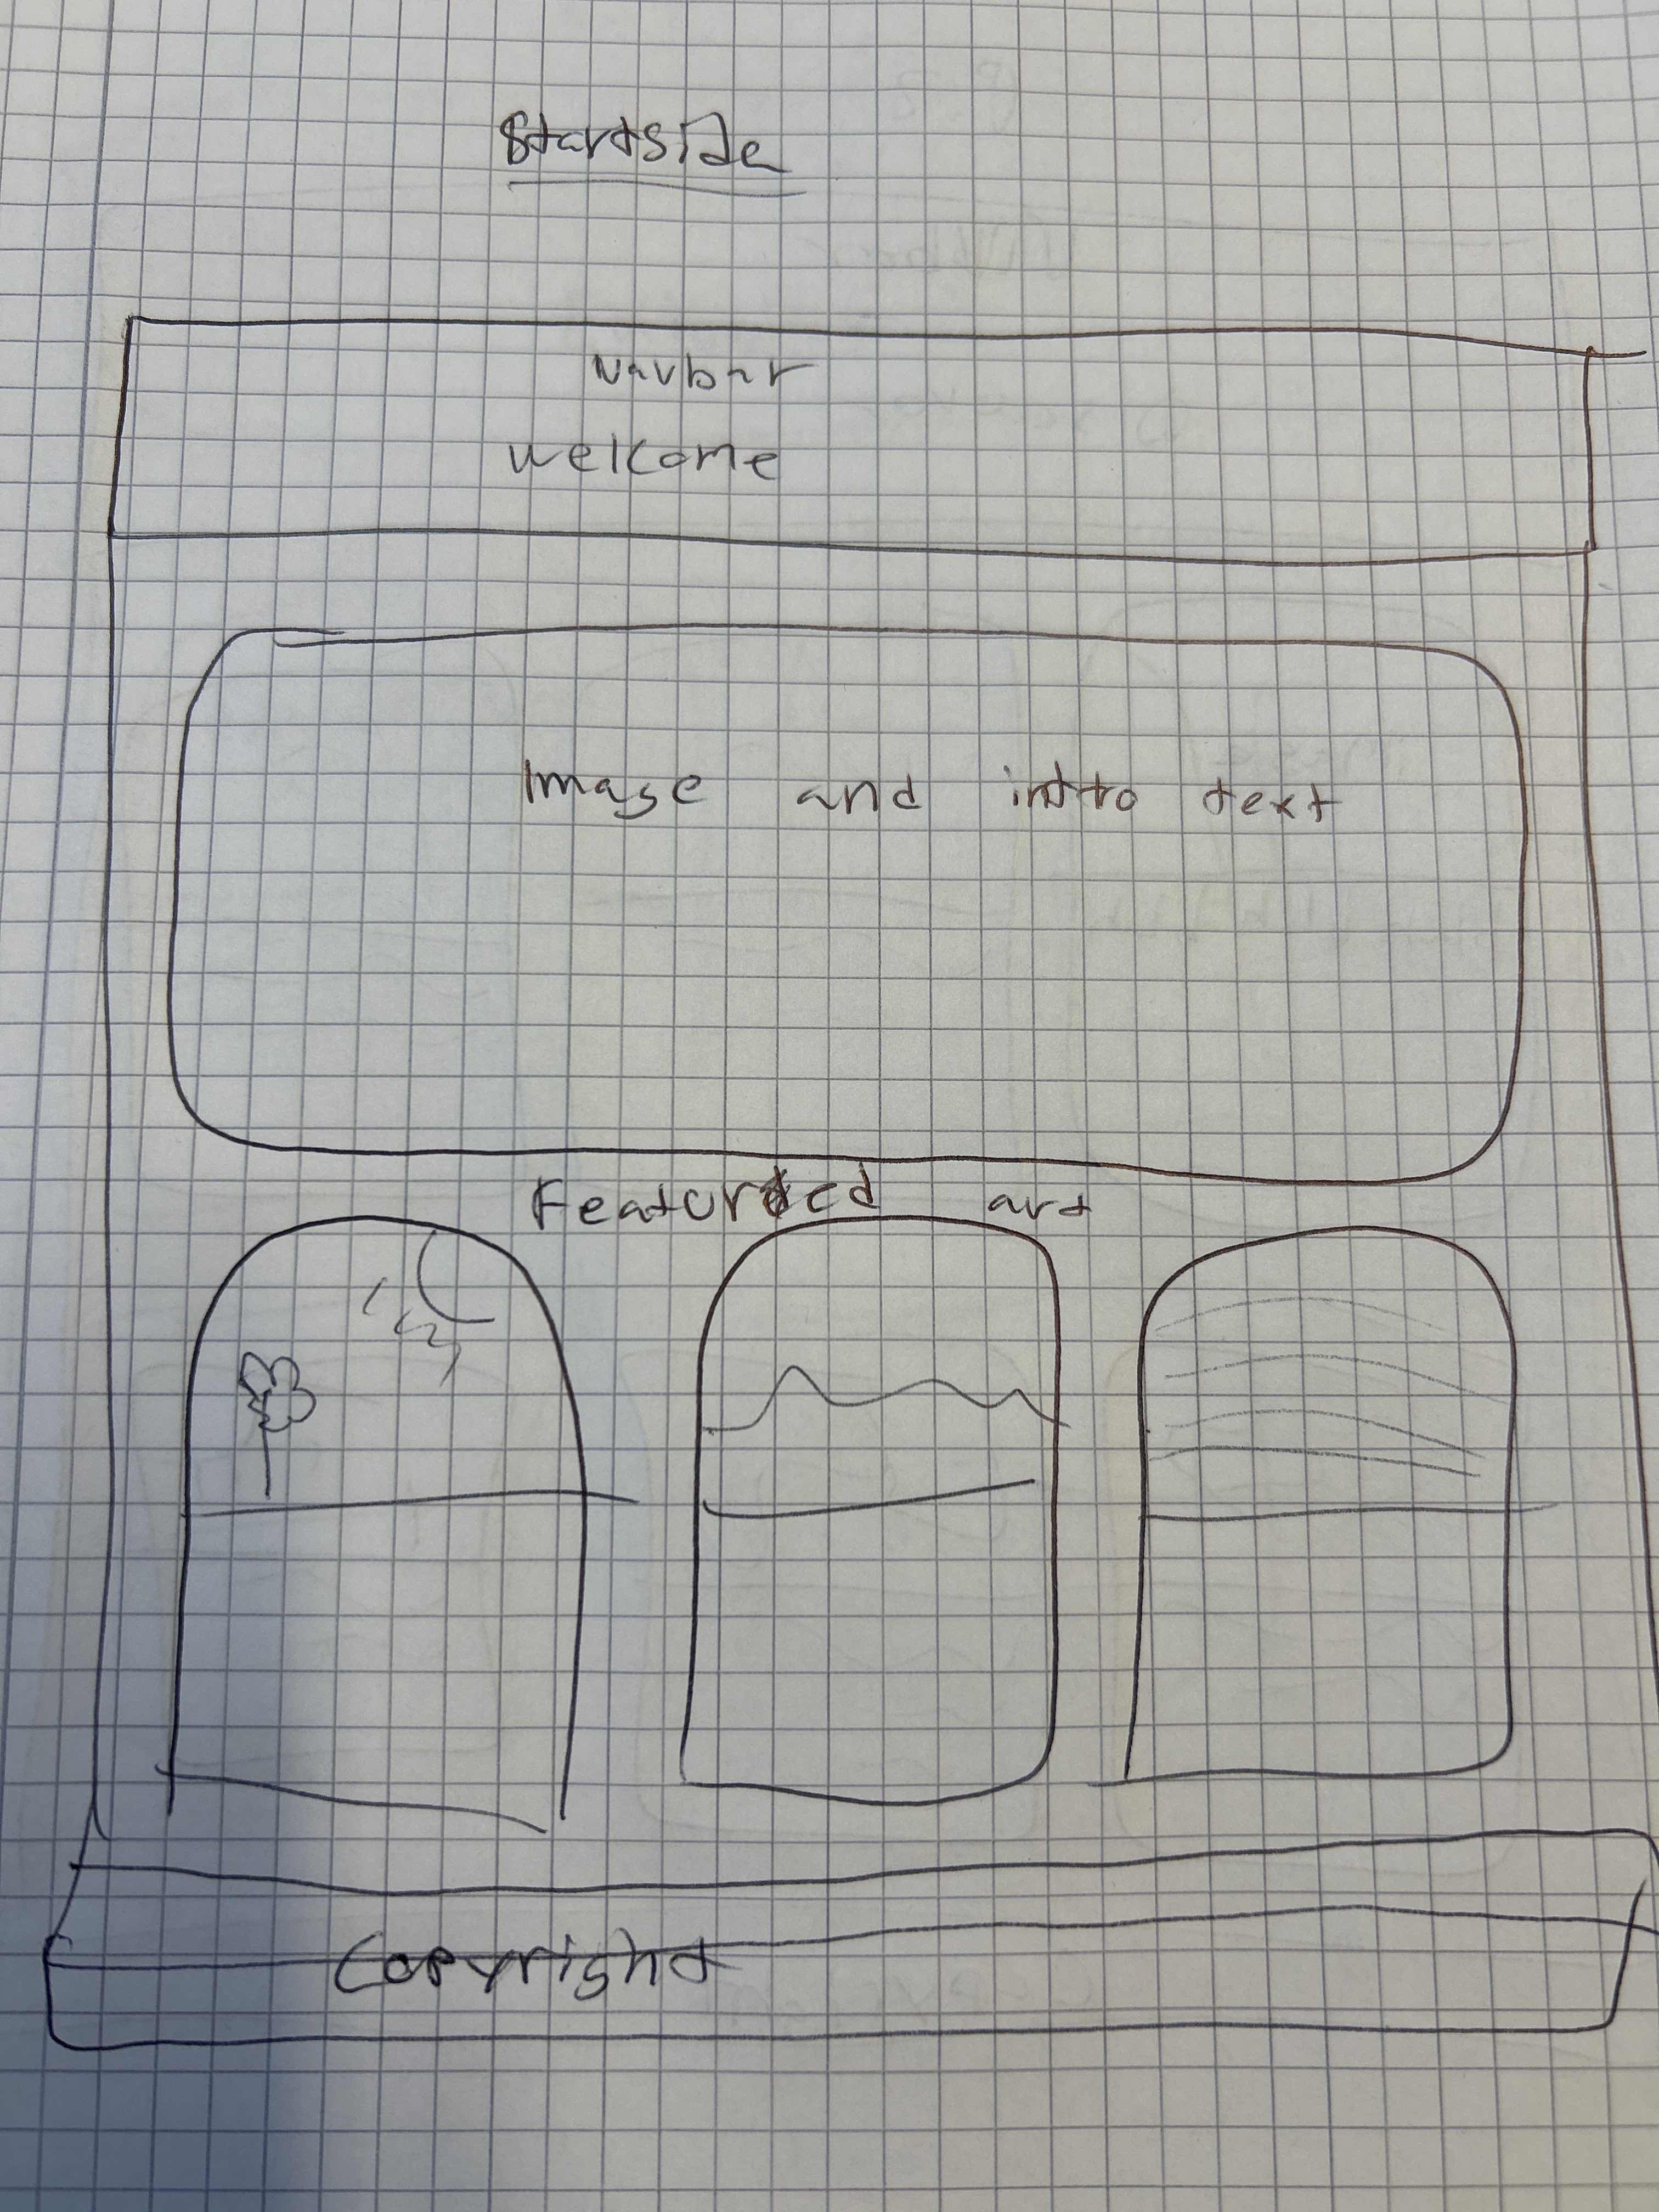 Startside
Navbar
welcome
Image and intro text
Featured art
Copyright